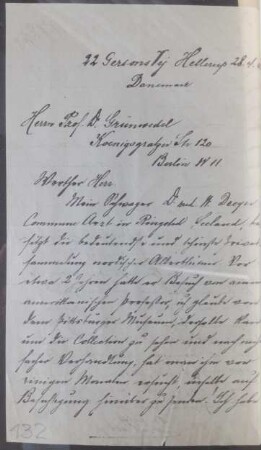 22 Gersonsvej Hellerup 28.
Danemark
Herrn Prof. D. Grünwedel
Koenigsgrätzer Str 120
Berlin W 11
Werther Herr
Mein Schwager D. med. A. Dreyer
Commune Arzt in Ringsted, Seeland, be
sitzt die bedeutendste und schönste Privat
sammlung nordischer Alterthümer. Vor
etwa 2 Jahren hatte er Besuch von einem
amerikanischen Professor
dem Pittsburger Museum, derselbe kam
um die Collection zu sehen und nach
facher Verhandlung, hat man ihn vor
einigen Monaten ersucht, dieselbe auf
Besichtigung hinüber zu senden. Ich habe
132